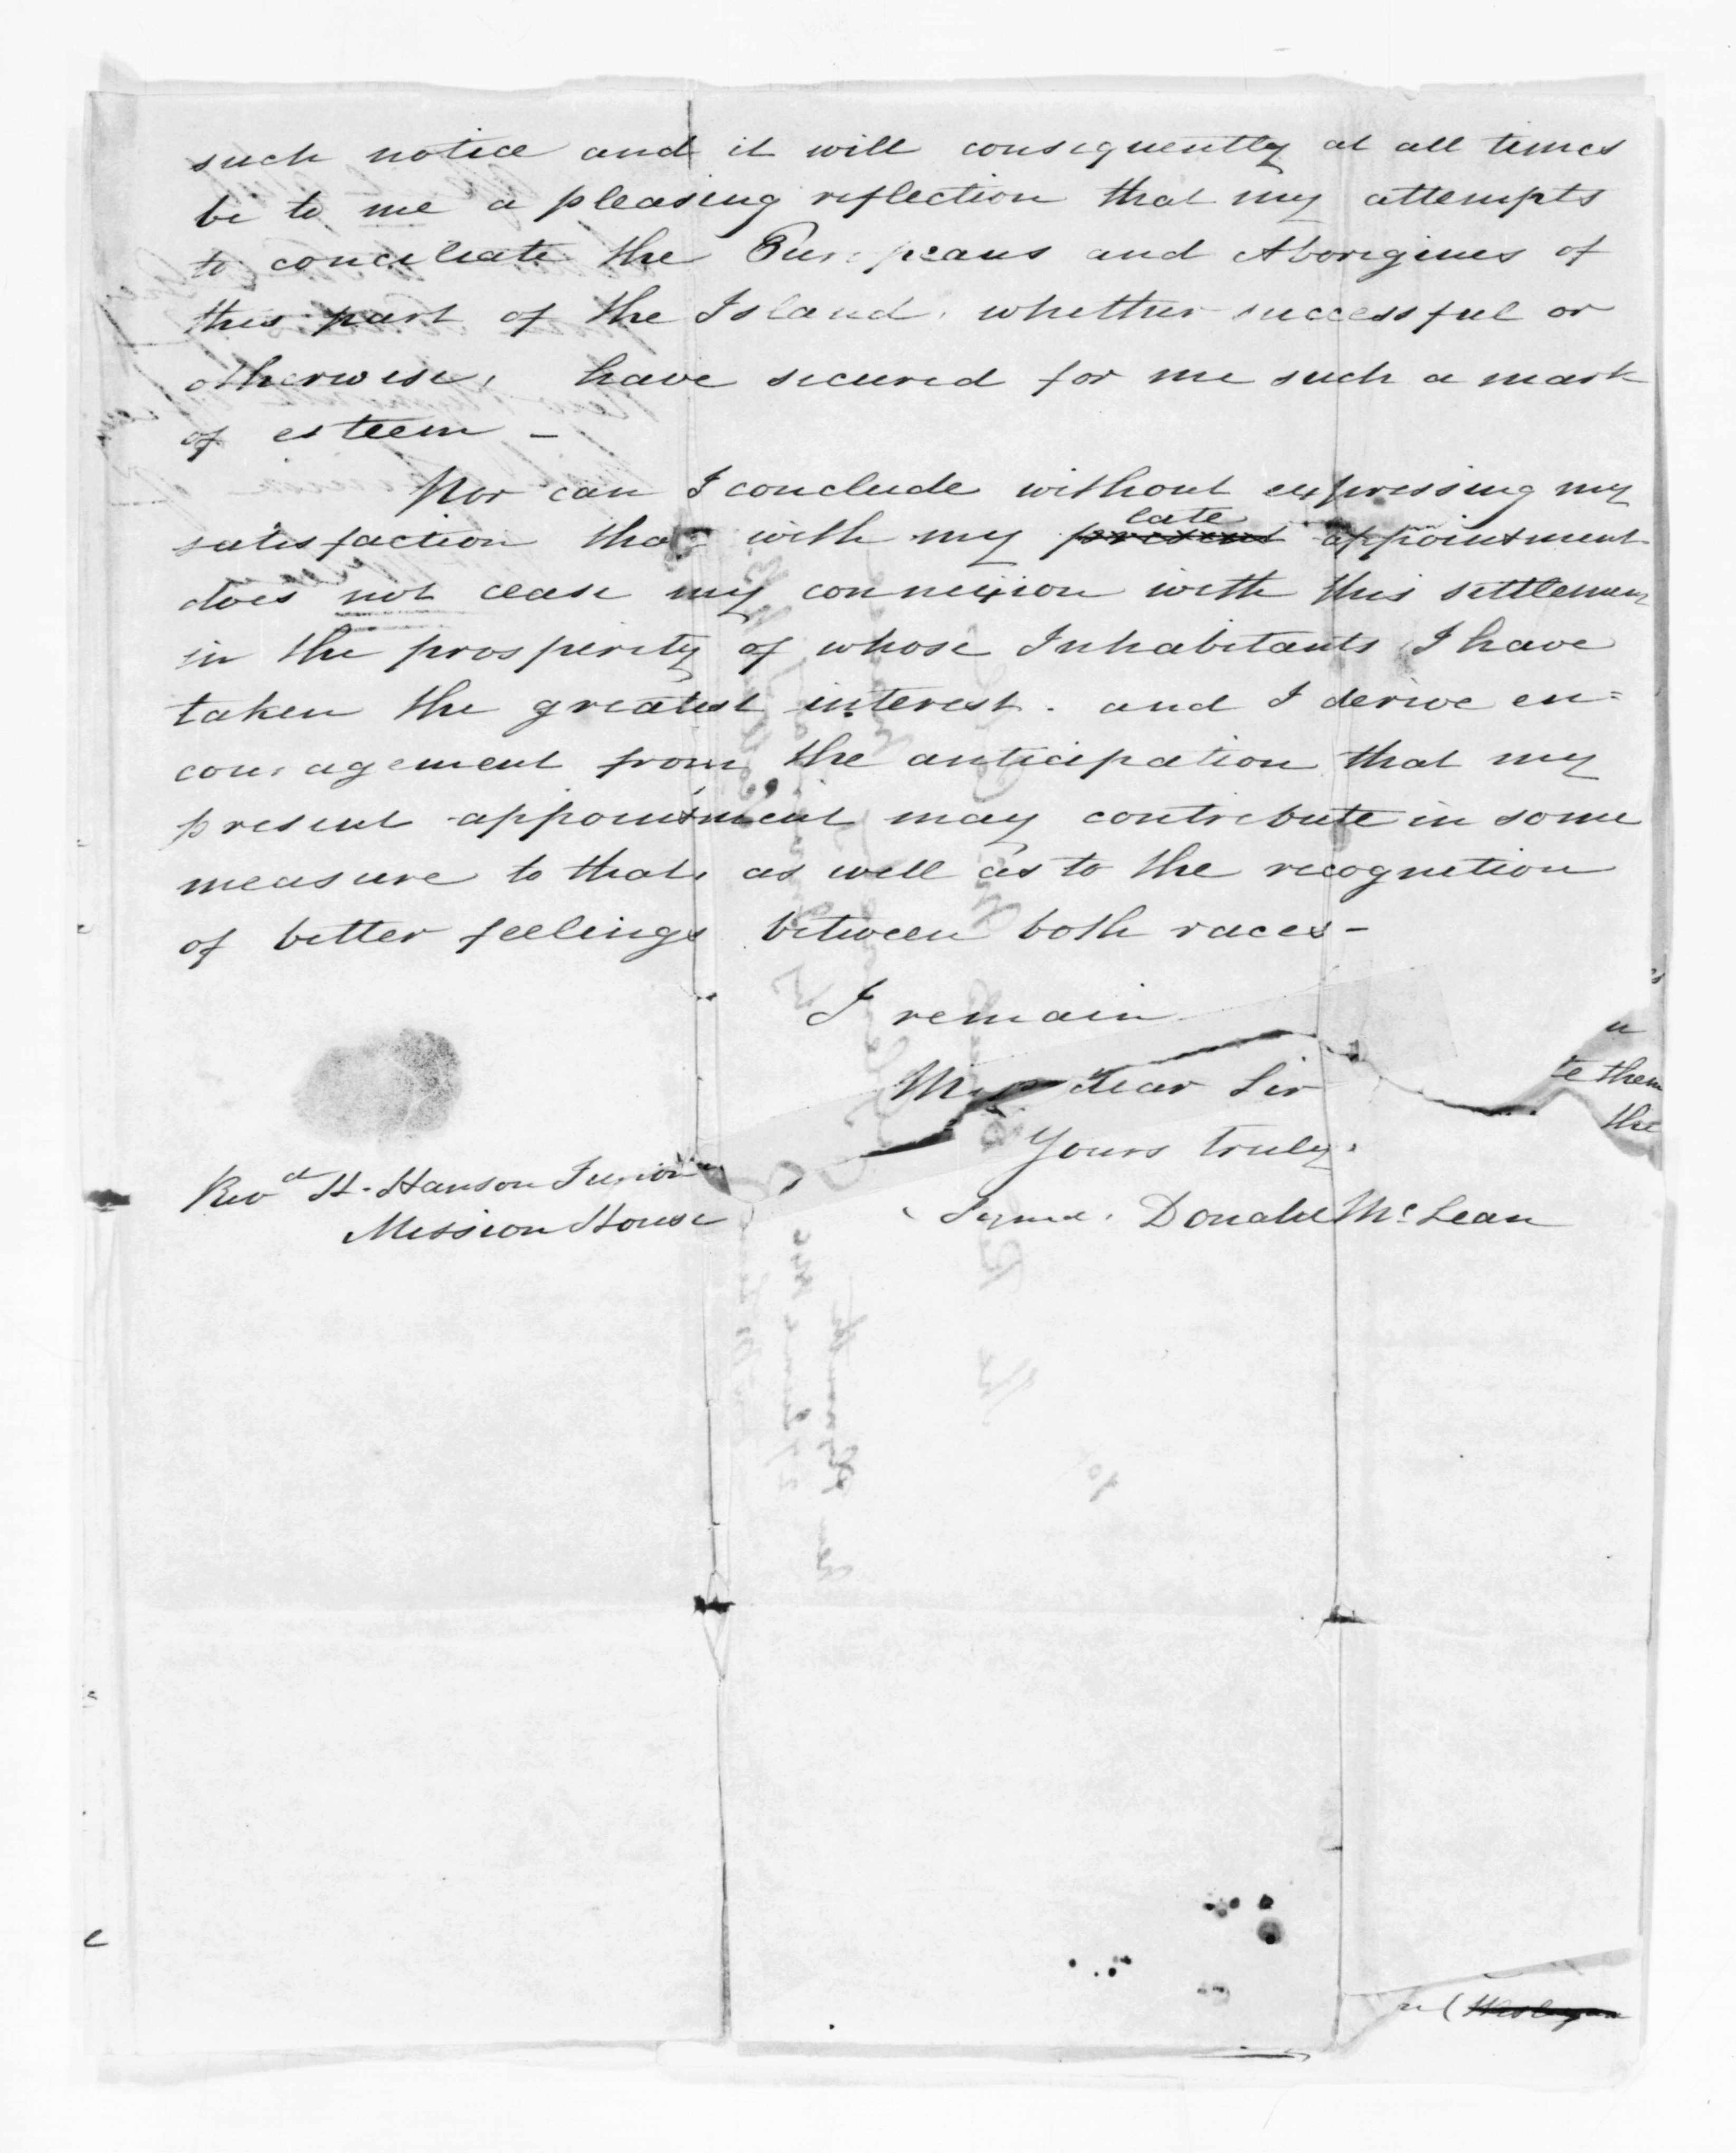 such notice and it will consequently at all times
be to me a pleasing reflection that my attempts
to conciliate the Europeans and Aborigines of
this part of the Island, whether successful or
otherwise, have secured for me such a mark
of esteem -
Nor can I conclude without expressing my
satisfaction that with my present late appointment
does not cease my connexion with this settlement
in the prosperity of whose Inhabitants I have
taken the greatest interest. and I derive en=
couragement from the anticipation that my
present appointment may contribute in some
measure to that, as well as to the recognition
of better feelings between both races -
I remain
My dear Sir
Yours truly.
Signed. Donald McLean
Revd H. Hanson Turton
Mission House
te them
the